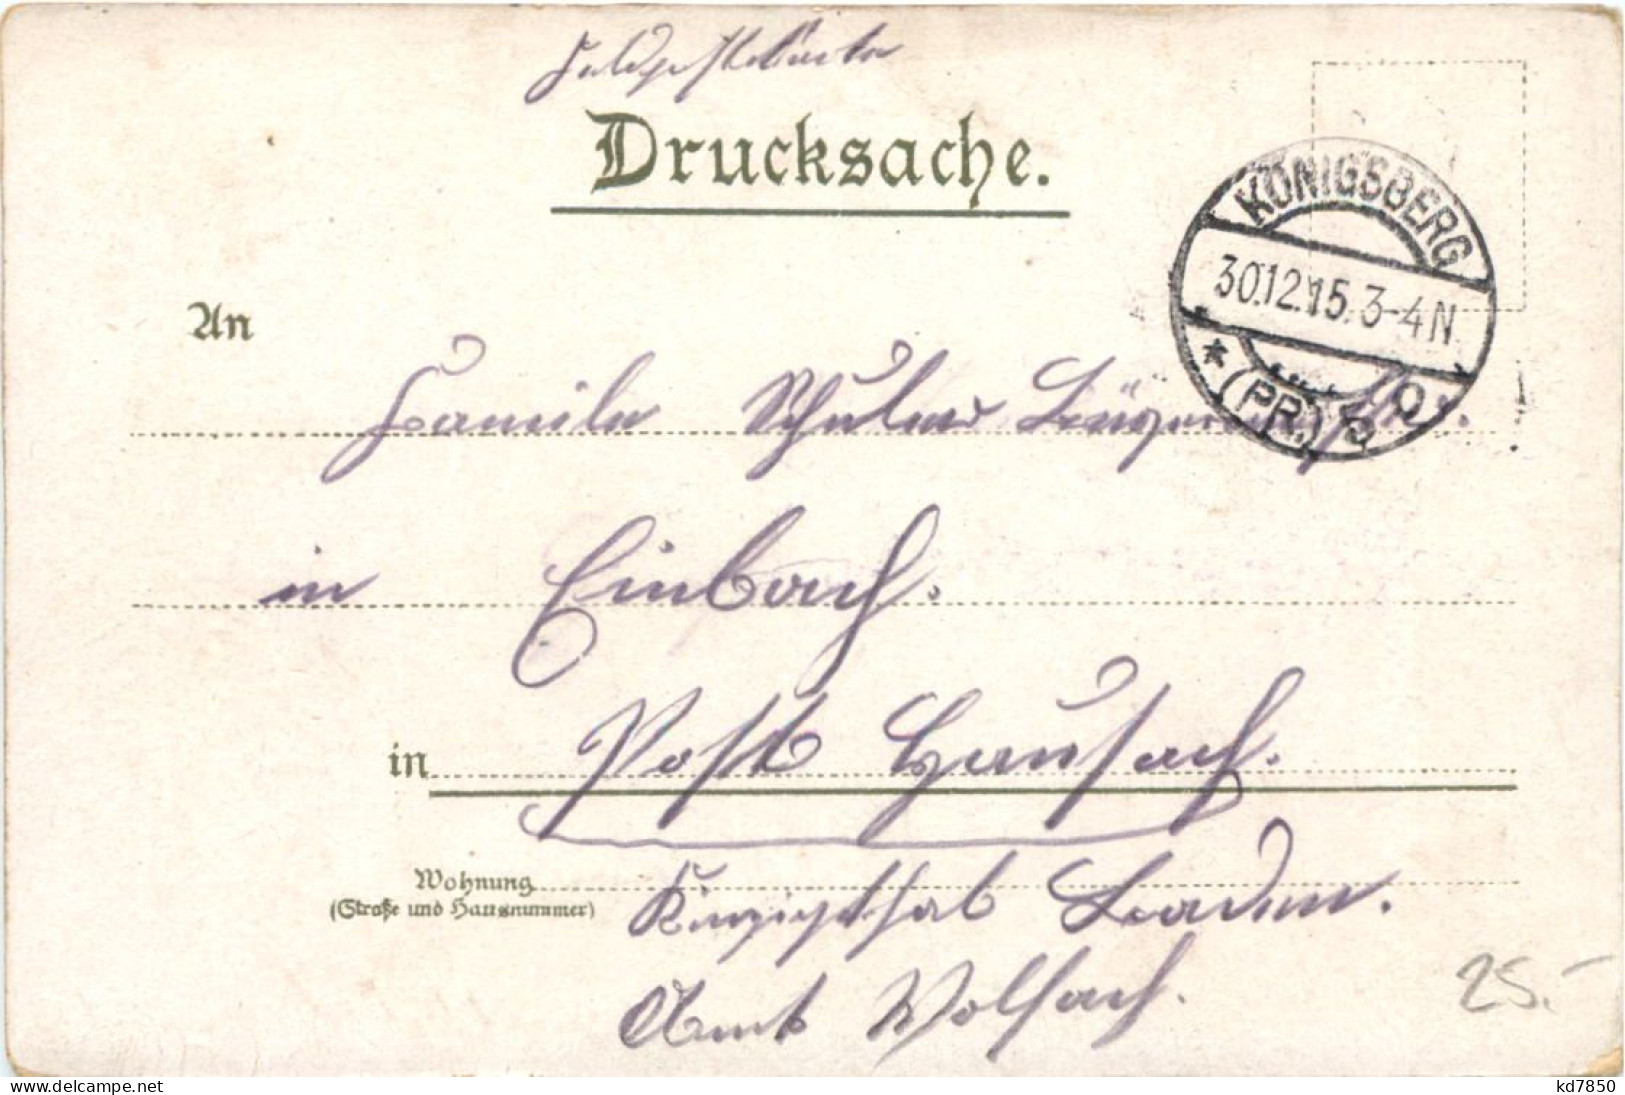 Feldpostkarte
Drucksache.
KÖNIGSBERG
30.12.15. 3-4 N
* (PR.) 5 Q
An
Familie Schuler
in Einbach.
in Post Hausach.
Wohnung
(Straße und Hausnummer)
Kinzigthal Baden.
Amt Wolfach.
25.-
www.delcampe.net
kd7850